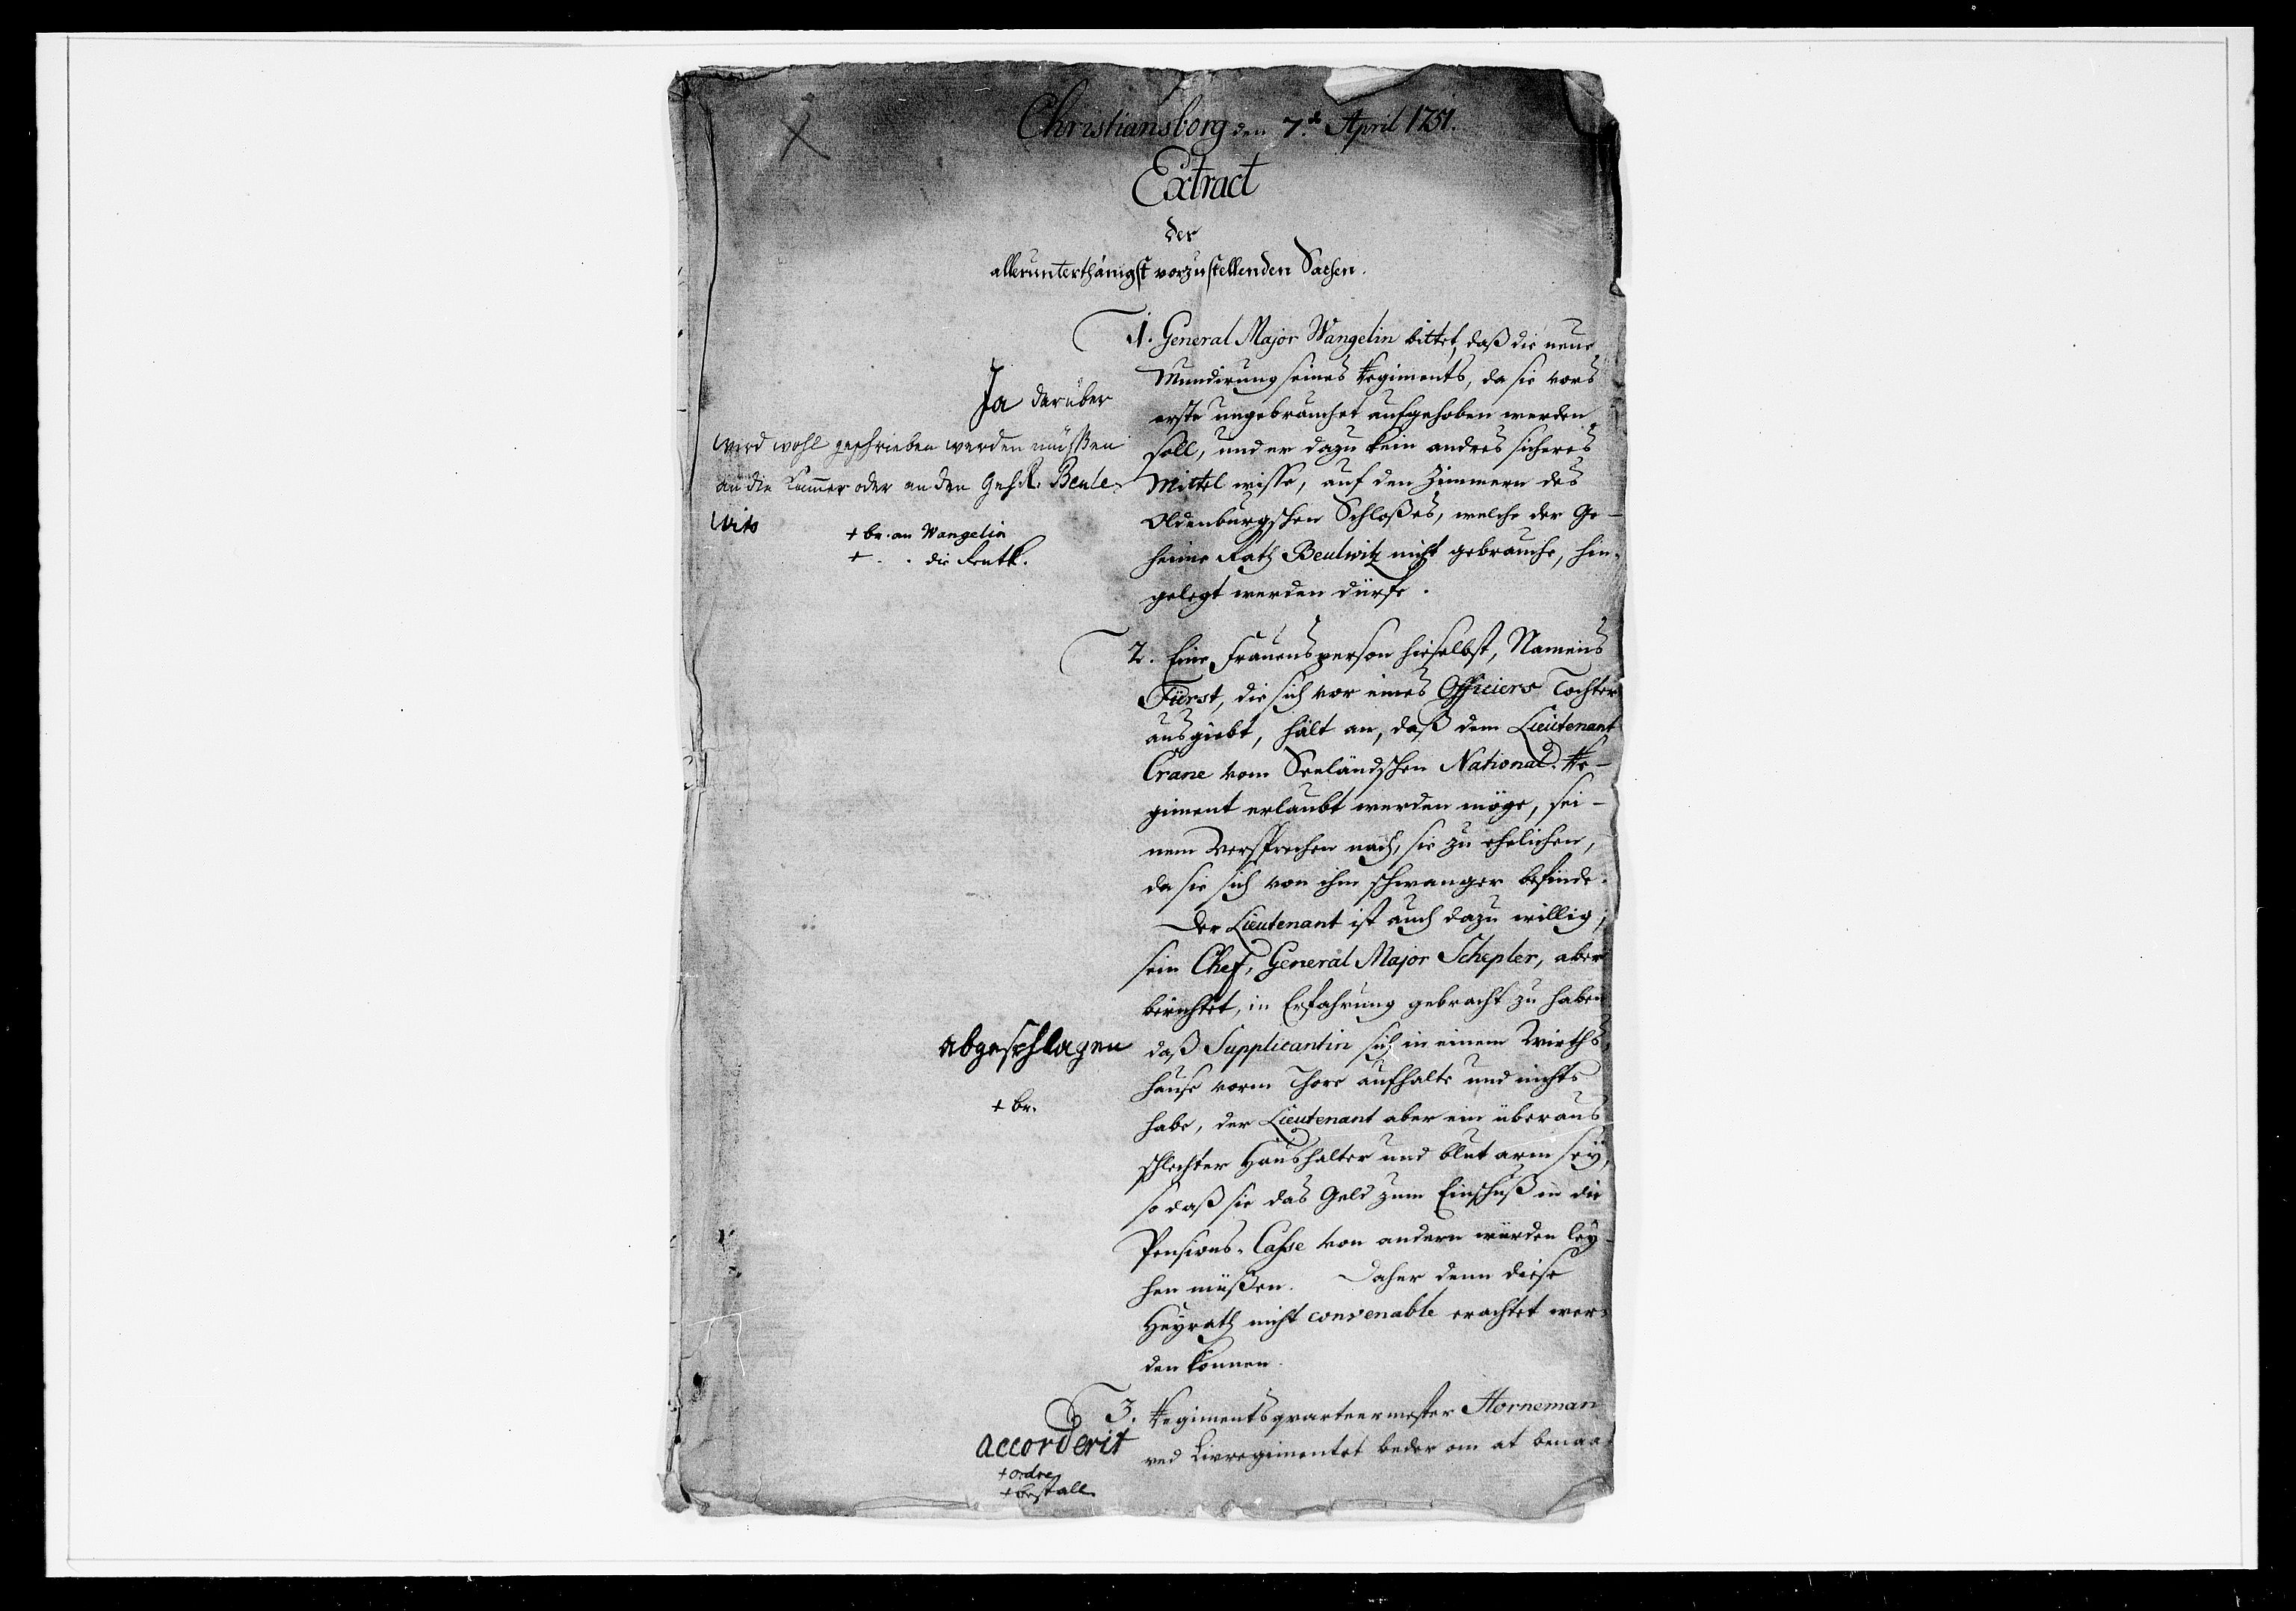 Christiansborg den 7.de April 1751.
Extract
der
allerunterthänigst vorzustellenden Sachen.
1. General Major Wangelin bittet, daß die neue
Mundirung seines Regiments, da sie vors
erste ungebrauchet aufgehoben werden
soll, und er dazu kein andres sicheres
Mittel wisse, auf den Zimmern des
Oldenburgschen Schloßes, welche der Ge-
heime Rath Beulwitz nicht gebrauche, hin-
gelegt werden dürfe.
Ja darüber
wird wohl geschrieben werden müßen
an die Cammer oder an den Geh. R. Beule-
witz
+ br. an Wangelin
+ . . die Rentk.
2. Eine Frauensperson hieselbst, Namens
Fürst, die sich vor eines Officiers Tochter
ausgiebt, hält an, daß dem Lieutenant
Crane vom Seeländschen National-Re-
giment erlaubt werden möge, sei-
nem Versprechen nach, sie zu ehelichen,
da sie sich von ihm schwanger befinde.
Der Lieutenant ist auch dazu willig;
sein Chef, General Major Schepler, aber
berichtet, in Erfahrung gebracht zu haben
daß Supplicantin sich in einem Wirths-
hause vorm Thore aufhalte und nichts
habe, der Lieutenant aber ein überaus
schlechter Haushalter und blut arm sey,
so daß sie das Geld zum Einschuß in die
Pensions-Casse von andern würden ley-
hen müßen. Daher denn diese
Heyrath nicht convenable erachtet wer-
den können.
abgeschlagen
+ br.
3. Regimentsqvarteermester Horneman
ved Livregimentet beder om at benaa-
accorderit
+ ordre
+ bestall.